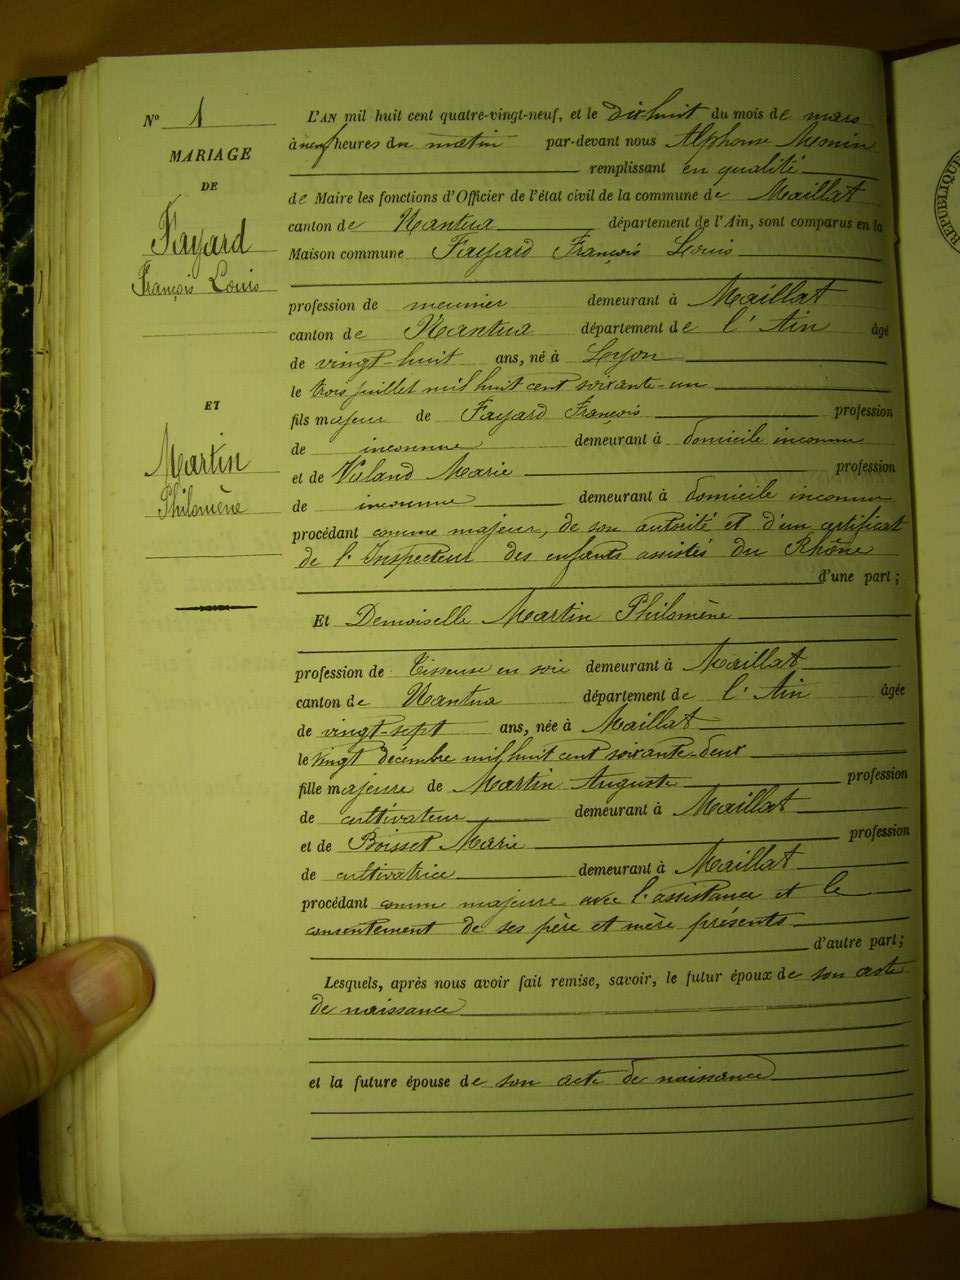 N° 1
MARIAGE
DE
Fayard
François Louis
ET
Martin
Philomène
L'AN mil huit cent quatre-vingt-neuf, et le dix huit du mois de mars
à neuf heures du matin par-devant nous Alphonse Mesnin
remplissant en qualité
de Maire les fonctions d'Officier de l'état civil de la commune de Maillat
canton de Nantua département de l'Ain, sont comparus en la
Maison commune Fayard François Louis
profession de meunier demeurant à Maillat
canton de Nantua département de l'Ain âgé
de vingt-huit ans, né à Lyon
le trois juillet mil huit cent soixante-un
fils majeur de Fayard François profession
de inconnue demeurant à domicile inconnu
et de Marie profession
de inconnue demeurant à domicile inconnu
procédant comme majeur, de son autorité et d'un certificat
de l'Inspecteur des enfants assistés du Rhône
d'une part;
Et Demoiselle Martin Philomène
profession de Tisseuse en soie demeurant à Maillat
canton de Nantua département de l'Ain âgée
de vingt-sept ans, née à Maillat
le vingt décembre mil huit cent soixante-deux
fille majeure de Martin Auguste profession
de cultivateur demeurant à Maillat
et de Boisset Marie profession
de cultivatrice demeurant à Maillat
procédant comme majeure avec l'assistance et le
consentement de ses père et mère présents
d'autre part;
Lesquels, après nous avoir fait remise, savoir, le futur époux de son acte
de naissance
et la future épouse de son acte de naissance
RÉPUBLIQUE